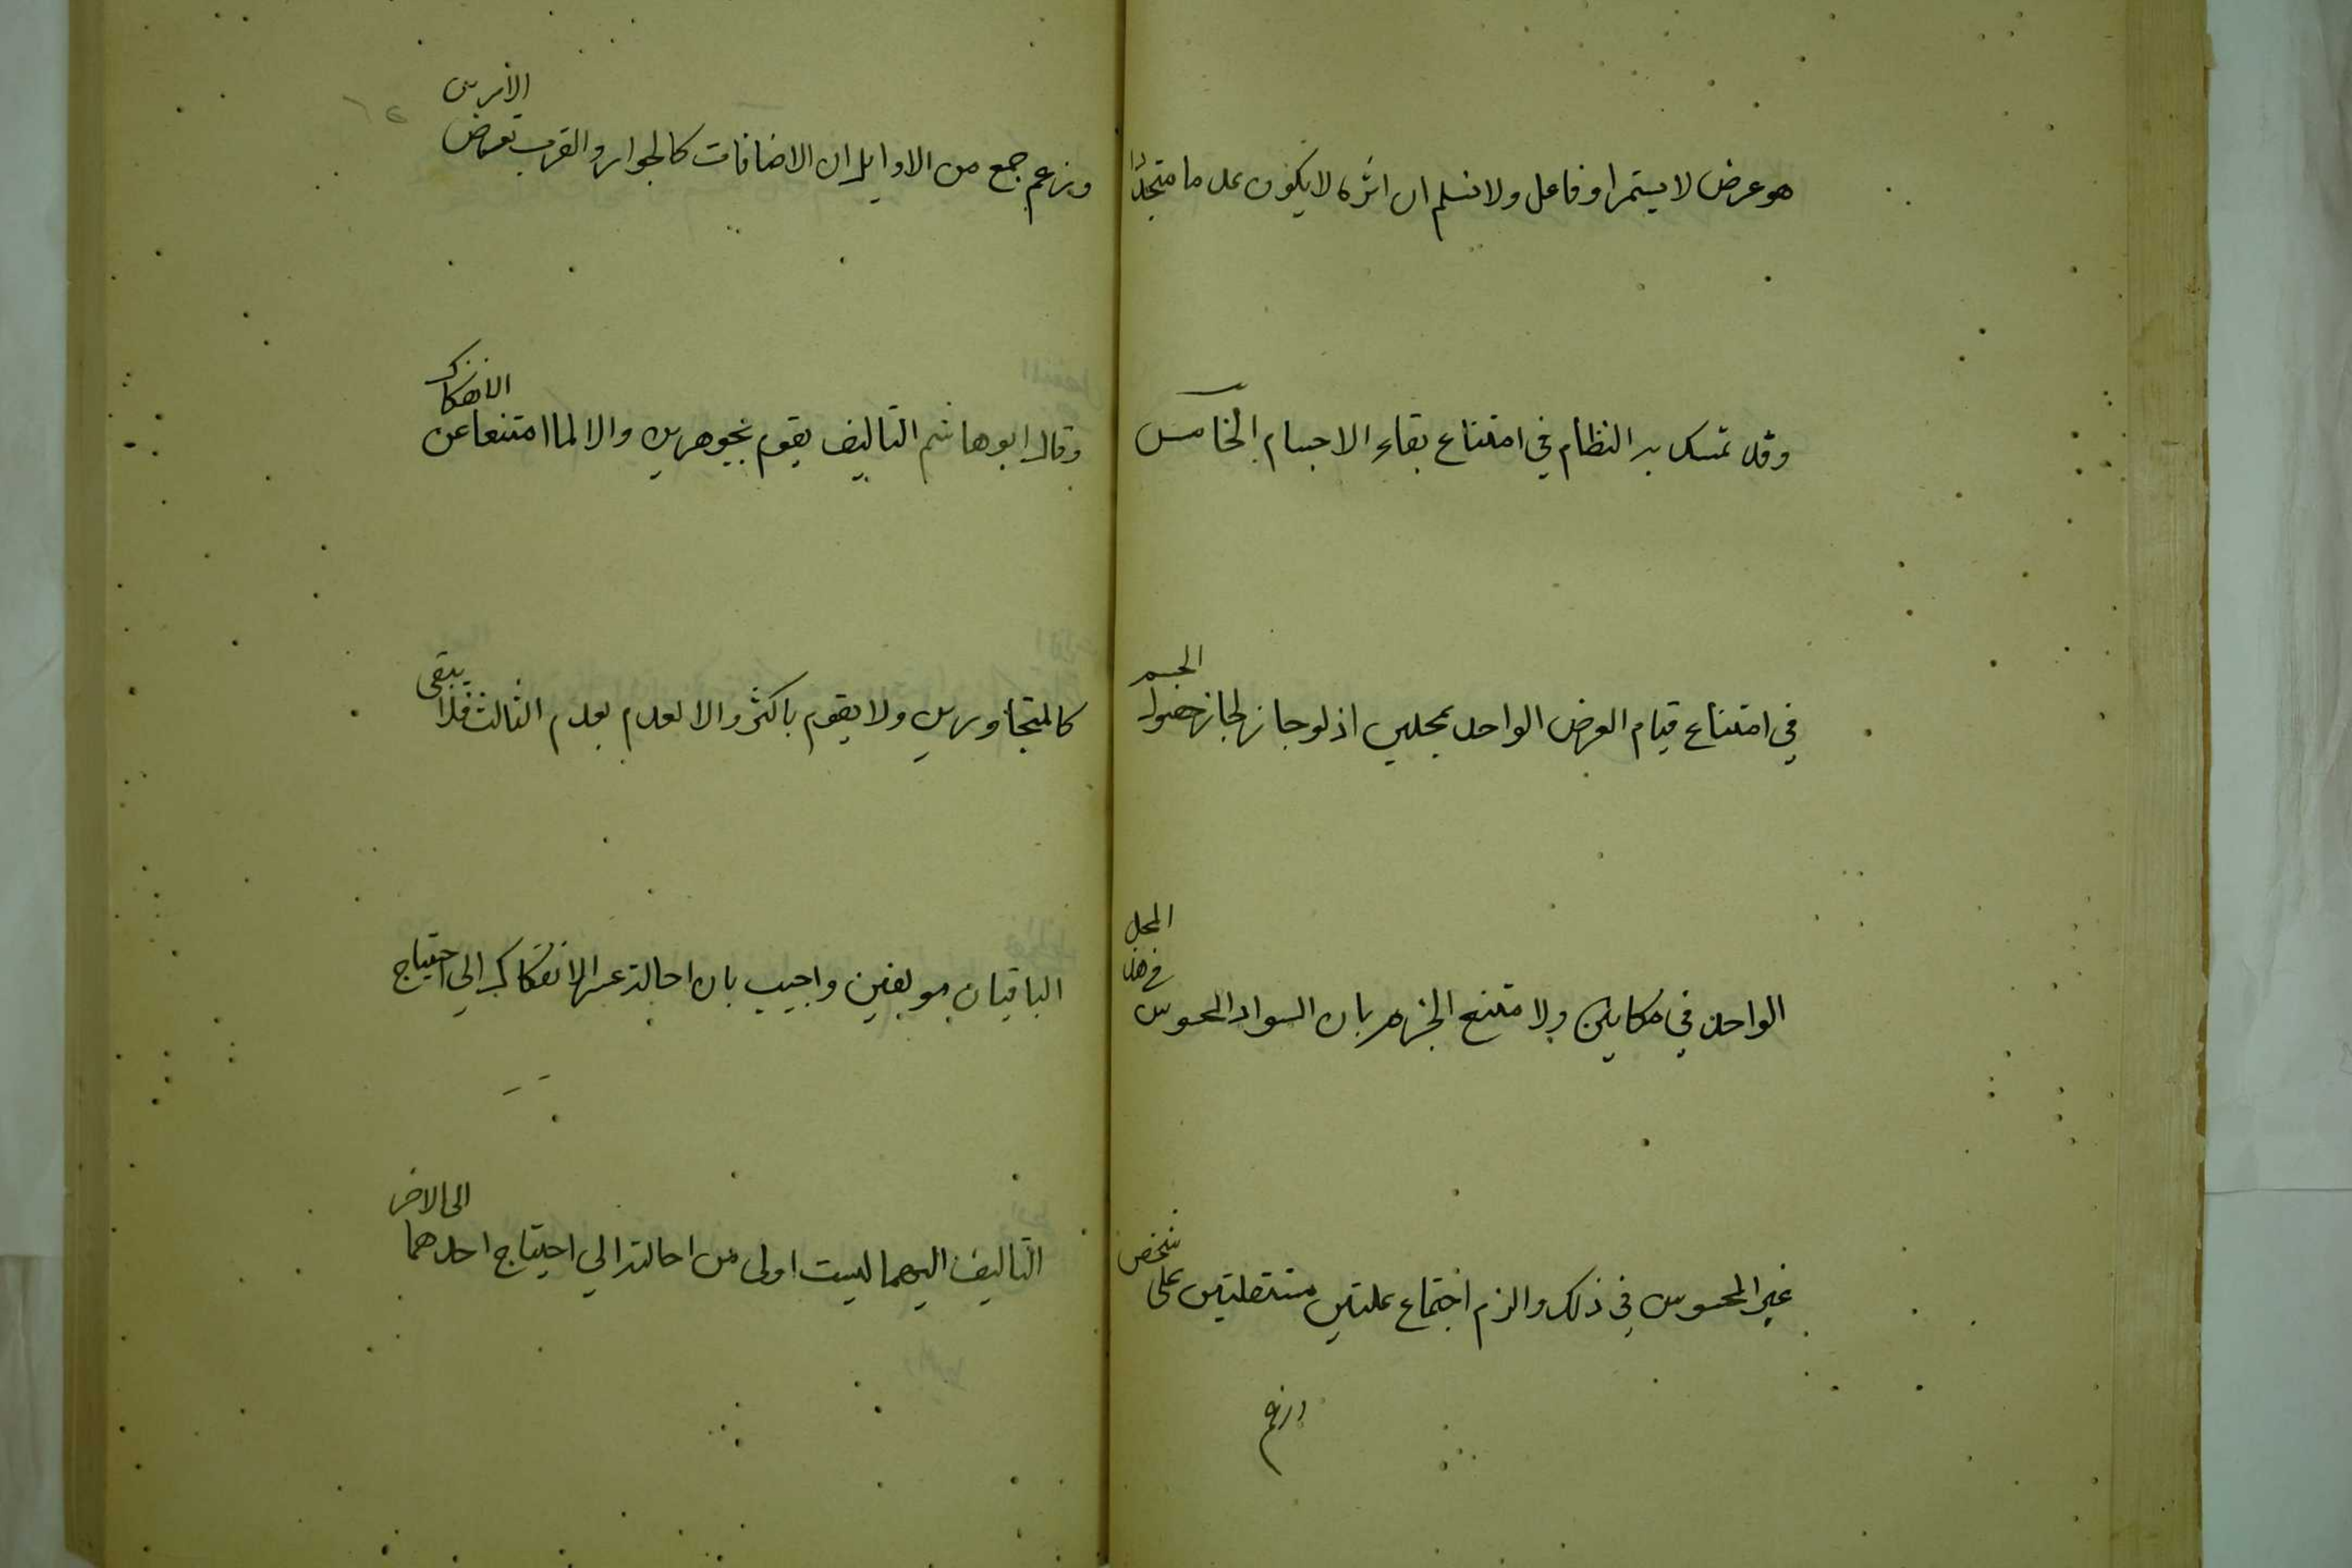 هو عرض لا يستمر او فاعل ولا نسلم ان اثره لا يكون عدما متجددا
وقد تمسك به النظام في امتناع بقاء الاجسام الخامس
في امتناع قيام العرض الواحد بمحلين اذ لو جاز لجاز حصول الجسم
الواحد في مكانين ولامتنع الجزم بان السواد المحسوس في هذا المحل
غير المحسوس في ذلك والزم اجتماع علتين مستقلتين على شخص
وزعم
وزعم جمع من الاوايل ان الاضافات كالجوار والقرب تعرض الامرين
وقال ابو هاشم التاليف يقوم بجوهرين والا لما امتنعا عن الانفكاك
كالمتجاورين ولا يقوم باكثر والا لعدم بعدم الثالث فلا يبقى
الباقيان مولفين واجيب بان احالة عسر الانفكاك الي احتياج
التاليف اليهما ليست اولى من احالته الي احتياج احدهما الى الاخر